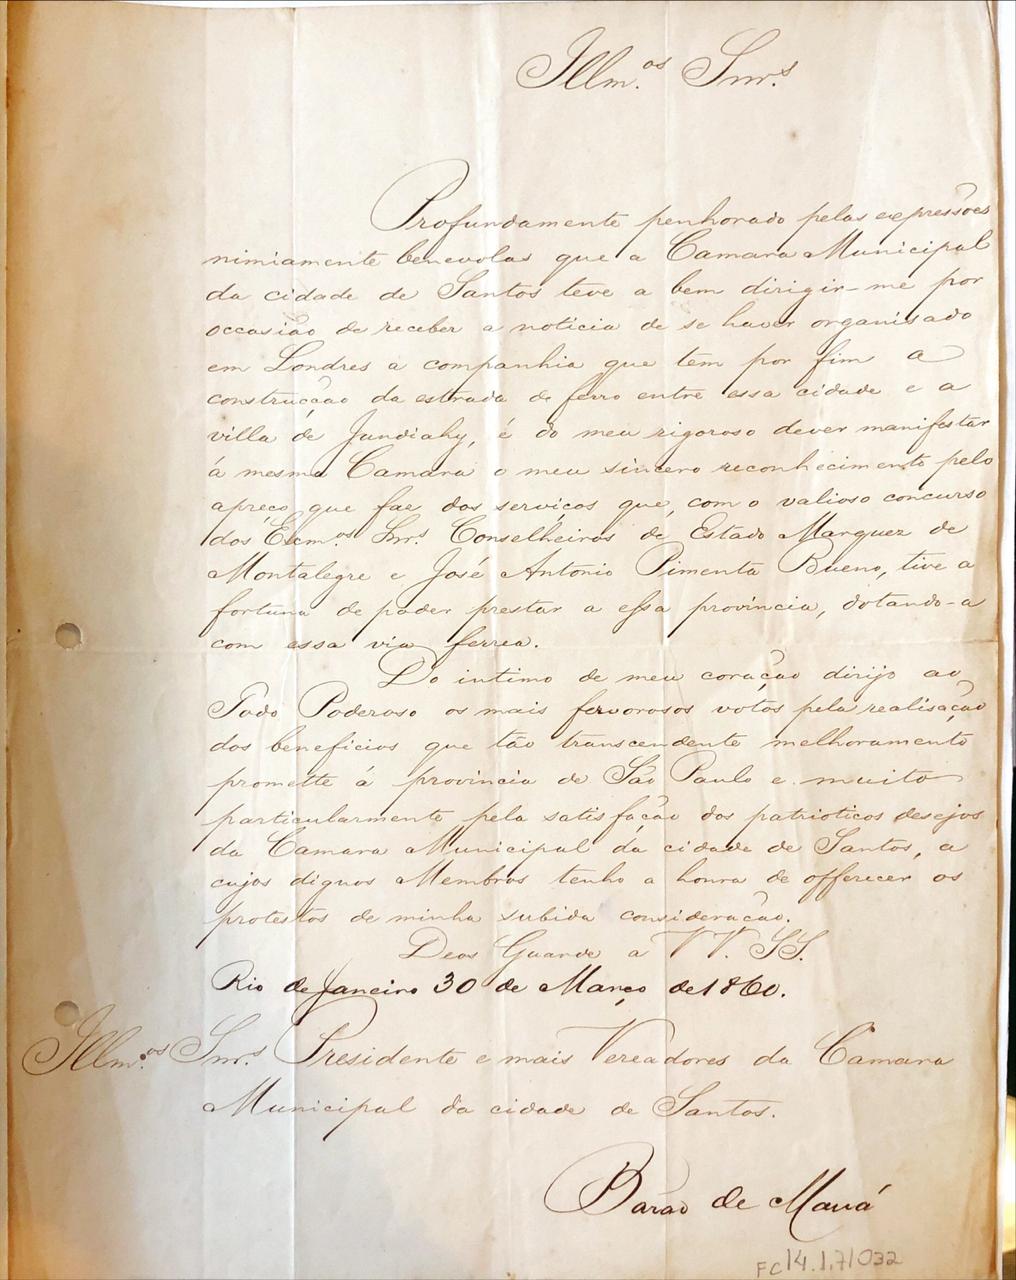 Illm.os Snr.s
Profundamente penhorado pelas expressões
nimiamente benevolas que a Camara Municipal
da cidade de Santos teve a bem dirigir-me por
occasião de receber a noticia de se haver organisado
em Londres a companhia que tem por fim a
construcção da estrada de ferro entre essa cidade e a
villa de Jundiahy, é do meu rigoroso dever manifestar
á mesma Camara o meu sincero reconhecimento pelo
apreço que faz dos serviços que, com o valioso concurso
dos Excm.os Snr.s Conselheiros de Estado Marquez de
Montalegre e José Antonio Pimenta Bueno, tive a
fortuna de poder prestar a essa provincia, dotando-a
com essa via ferrea.
Do intimo de meu coração dirijo ao
Todo Poderoso os mais fervorosos votos pela realisação
dos beneficios que tão transcendente melhoramento
promette á provincia de São Paulo e muito
particularmente pela satisfação dos patrioticos desejos
da Camara Municipal da cidade de Santos, a
cujos dignos Membros tenho a honra de offerecer os
protestos de minha subida consideração.
Deos Guarde a VV. SS.
Rio de Janeiro 30 de Março de 1860.
Illm.os Snr.s Presidente e mais Vereadores da Camara
Municipal da cidade de Santos.
Barão de Mauá
FC14.1.7/032